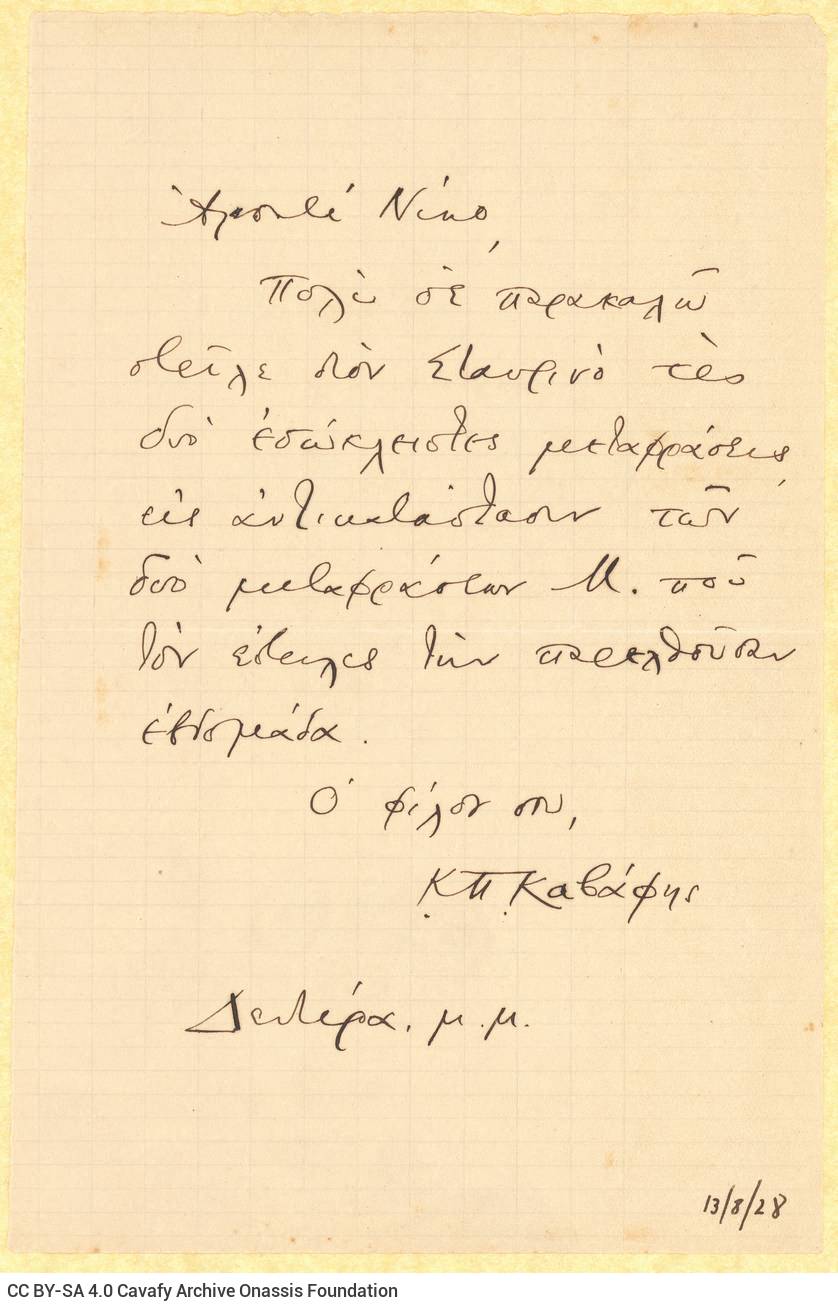 Ἀγαπητέ Νίκο,
Πολὺ σὲ παρακαλῶ
στεῖλε στὸν Σταυρινὸ τὲς
δυὸ ἐσώκλειστες μεταφράσεις,
εἰς ἀντικατάστασιν τῶν
δυὸ μεταφράσεων Μ. ποῦ
τὸν ἔστειλες τὴν παρελθοῦσαν
ἑβδομάδα.
Ὁ φίλος σου,
Κ.Π. Καβάφης
Δευτέρα, μ.μ.
13/8/28
CC BY-SA 4.0 Cavafy Archive Onassis Foundation